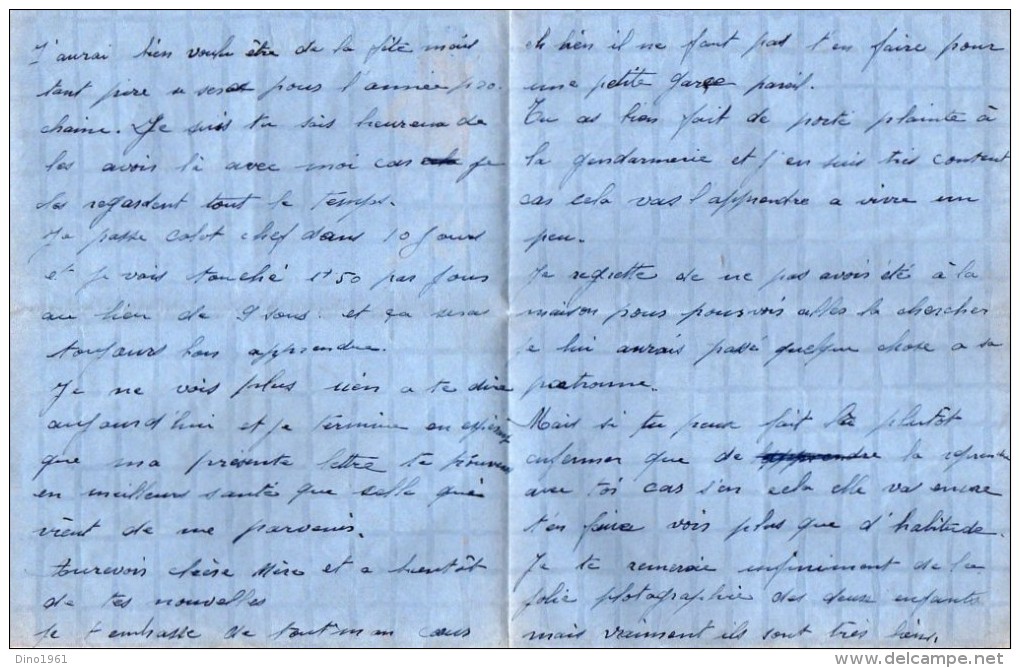 J'aurai bien voulu être de la fête mais
tant pire se sera pour l'année pro-
chaine. Je suis tu sais heureux de
les avoir là avec moi car je
les regardent tout le temps.
Je passe calot chef dans 10 jours
et je vais touché 1f50 par jours
au lieu de 9 sous. et ça seras
toujours bon apprendre.
Je ne vois plus rien a te dire
aujourd'hui et je termine en espérant
que ma présente lettre te trouvera
en meilleurs santée que celle qui
vient de me parvenir.
aurevoir chère Mère et a bientôt
de tes nouvelles
Je t'embrasse de tout mon cœur
eh bien il ne faut pas t'en faire pour
une petite garce pareil.
Tu as bien fait de porté plainte à
la gendarmerie et j'en suis très content
car cela vas l'apprendre a vivre un
peu.
Je regrette de ne pas avoir été à la
maison pour pouvoir allés la chercher
je lui aurais passé quelque chose a sa
patronne.
Mais si tu peux fait la plutôt
enfermer que de la reprendre
avec toi car s'en cela elle vas encore
t'en faire voir plus que d'habitude.
Je te remercie infiniment de la
jolie photographie des deux enfants
mais vraiment ils sont très bien.
Dino1961
www.delcampe.net